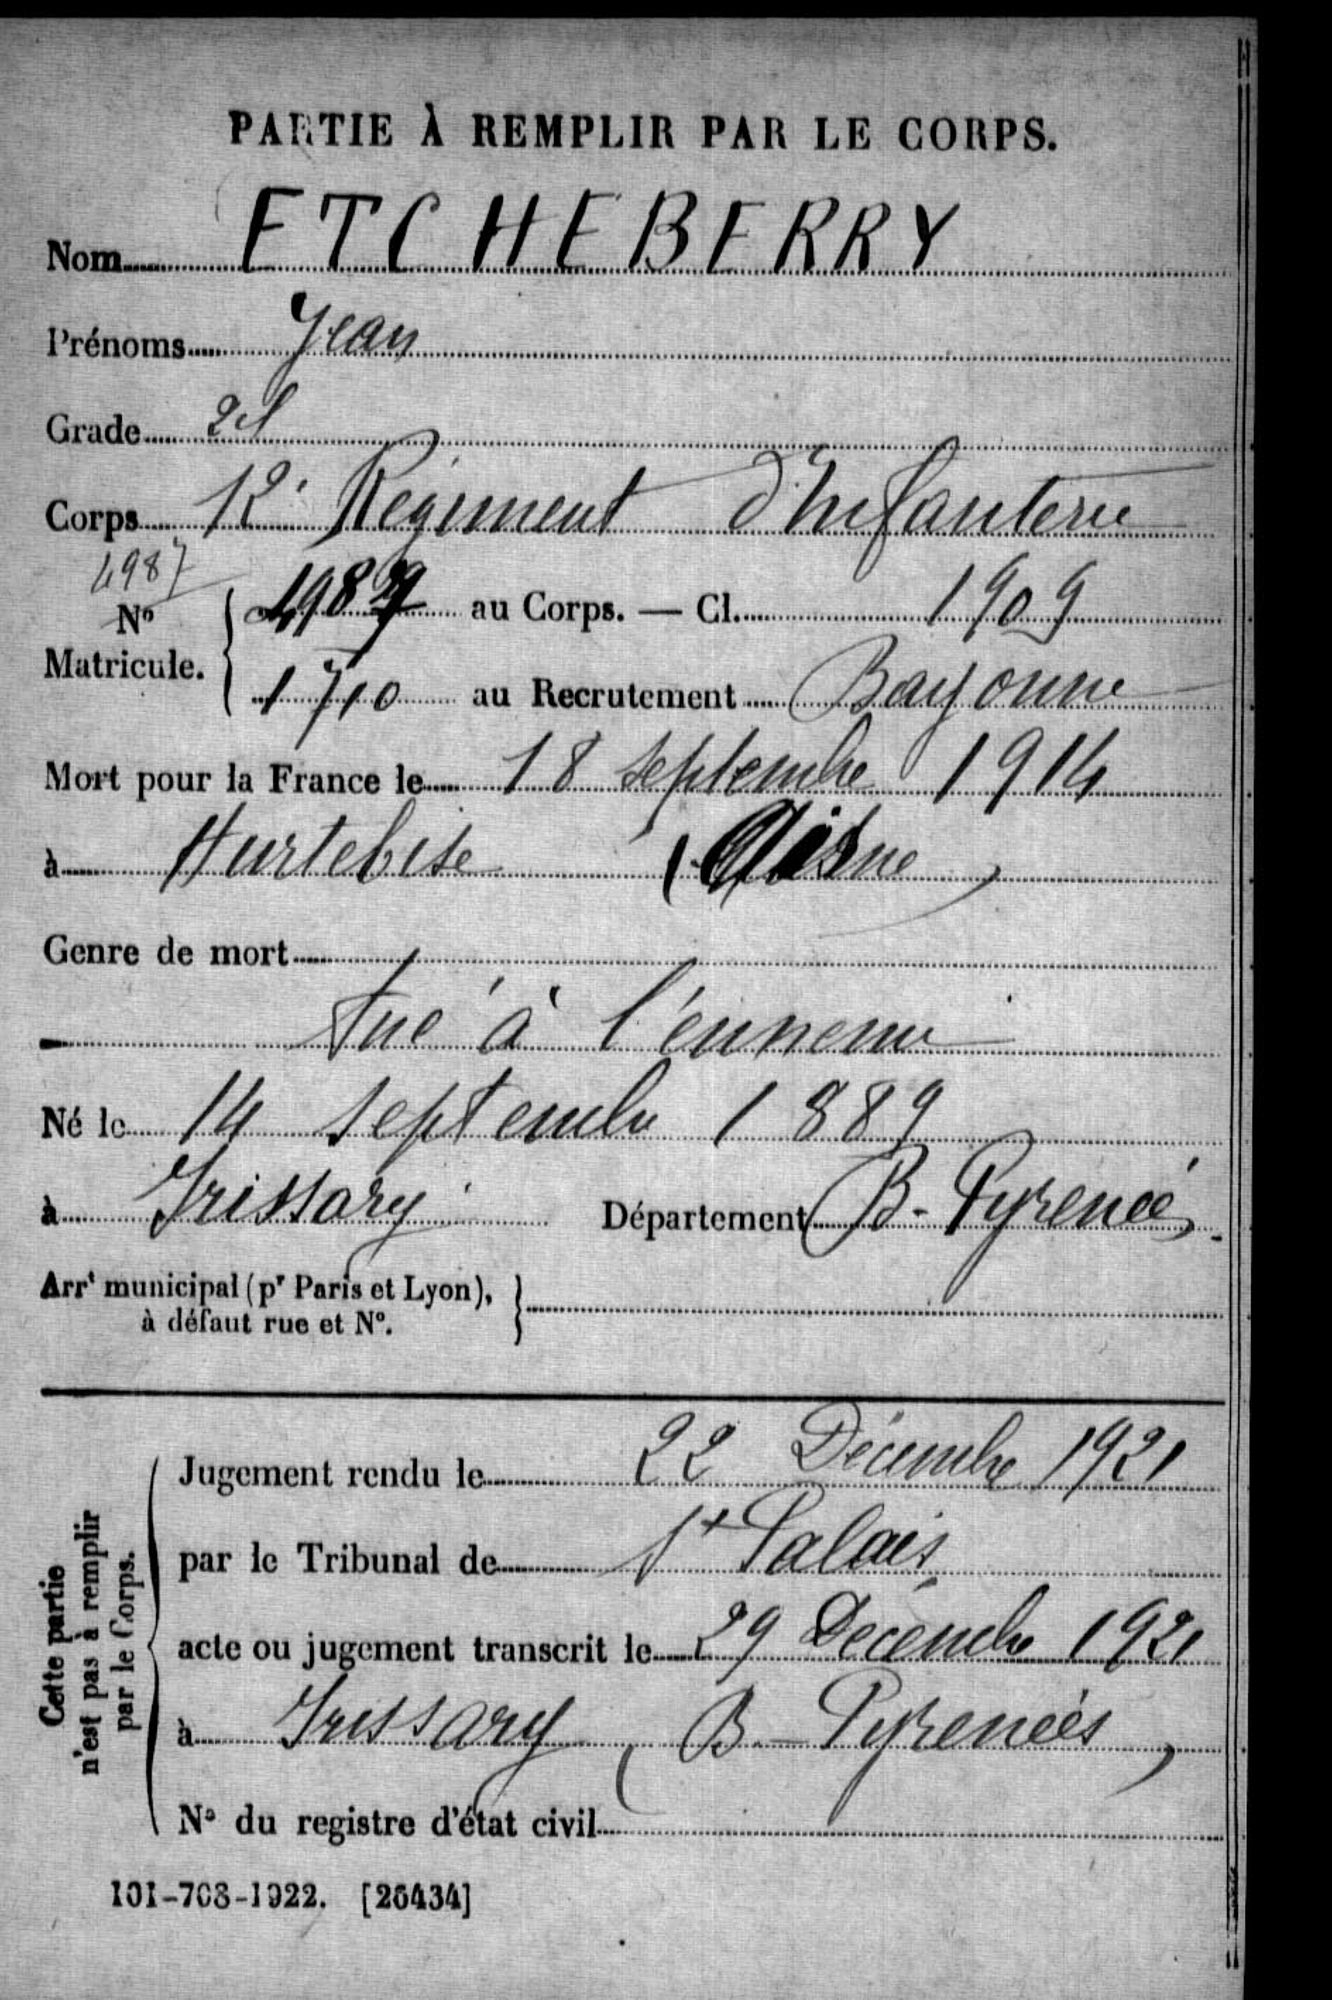 PARTIE À REMPLIR PAR LE CORPS.
Nom ETCHEBERRY
Prénoms Jean
Grade 2 Cl
Corps 12e Régiment d'Infanterie
4987
No Matricule. { 4987 au Corps. — Cl. 1909
1710 au Recrutement Bayonne
Mort pour la France le 18 septembre 1914
à Hurtebise (Aisne)
Genre de mort
Tué à l'ennemi
Né le 14 septembre 1889
à Irissary Département B. Pyrénées
Arrt municipal (pr Paris et Lyon),
à défaut rue et No.
Cette partie
n'est pas à remplir
par le Corps.
Jugement rendu le 22 Décembre 1921
par le Tribunal de St Palais
acte ou jugement transcrit le 29 Décembre 1921
à Irissary (B - Pyrénées)
No du registre d'état civil
101-708-1922. [26434]